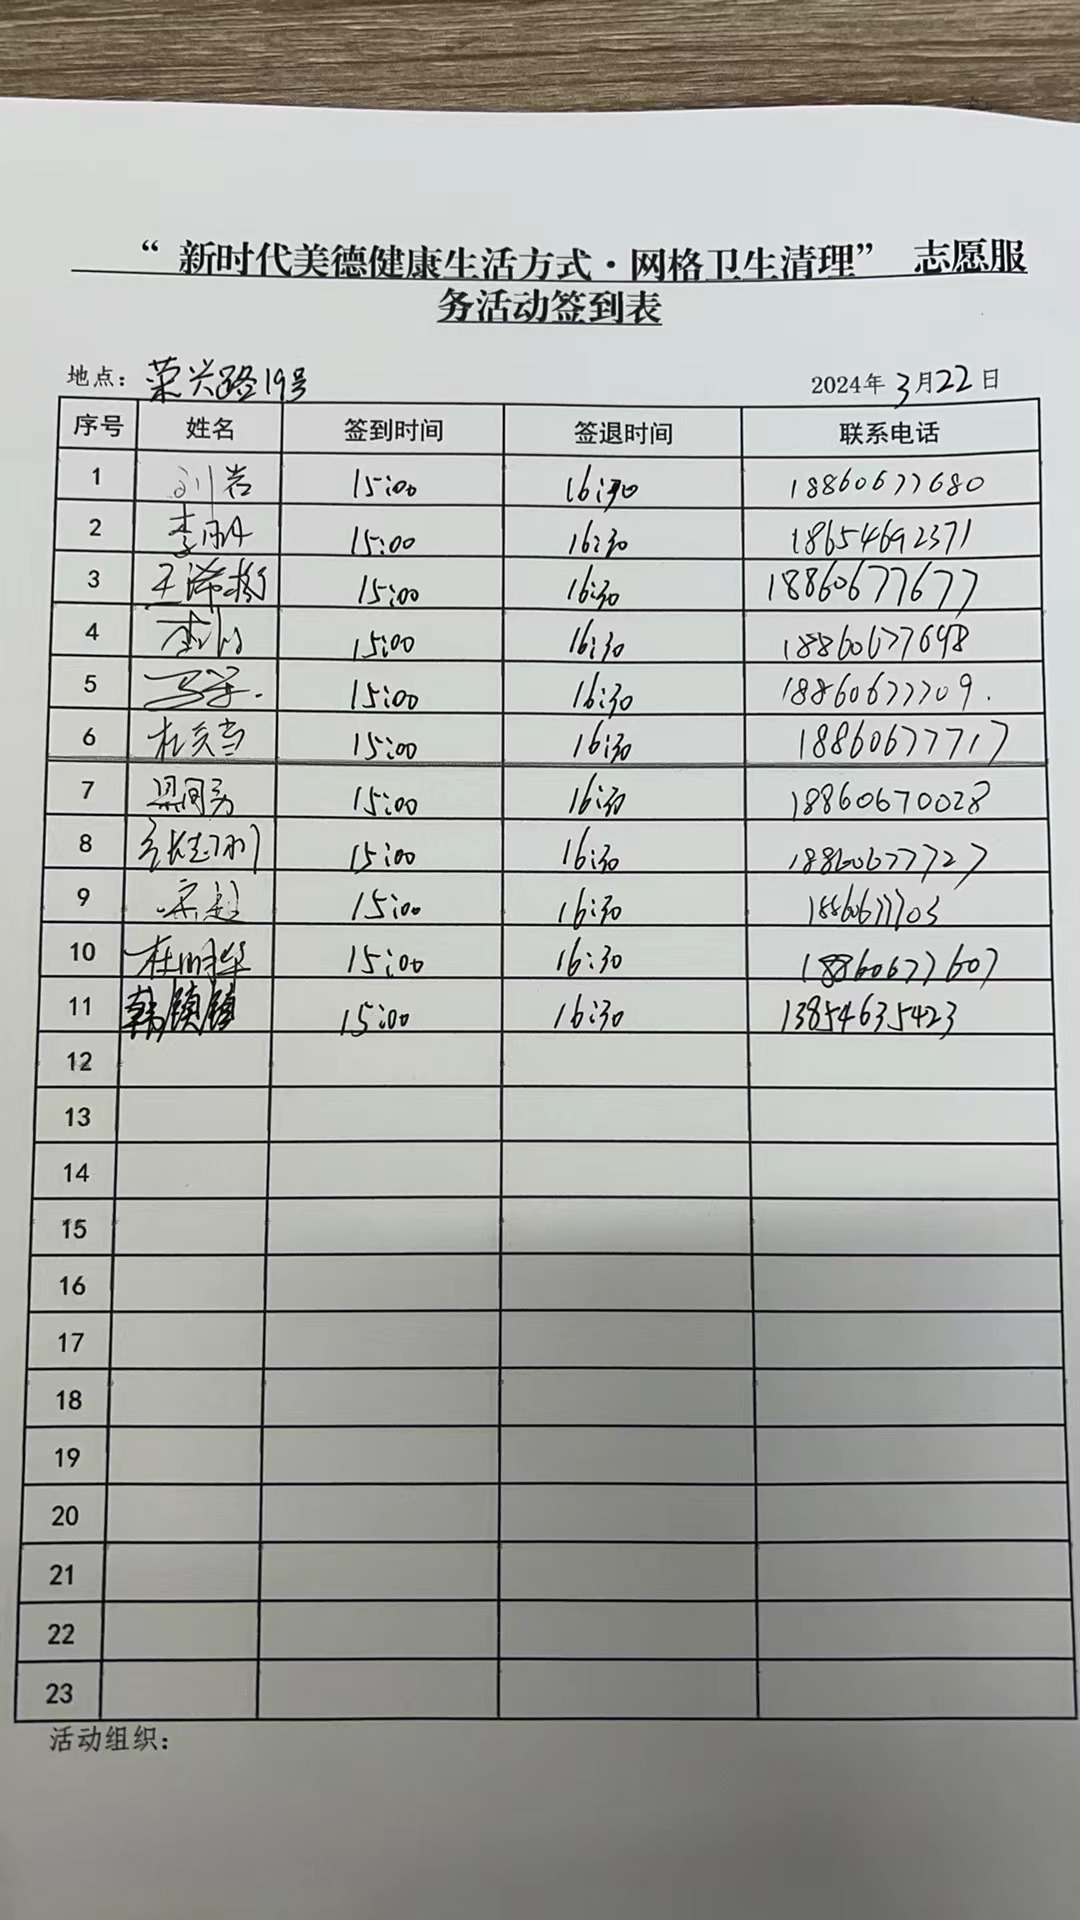 “ 新时代美德健康生活方式·网格卫生清理” 志愿服
务活动签到表
地点：荣兴路19号 2024年3月22日
序号 姓名 签到时间 签退时间 联系电话
1 刘岩 15:00 16:30 18860677680
2 15:00 16:30 18654692371
3 15:00 16:30 18860677677
4 15:00 16:30 18860677698
5 15:00 16:30 18860677709.
6 15:00 16:30 18860677717
7 15:00 16:30 18860670028
8 15:00 16:30 18860677727
9 15:00 16:30 18860677703
10 杜明华 15:00 16:30 18860677607
11 韩镇镇 15:00 16:30 13854635423
12
13
14
15
16
17
18
19
20
21
22
23
活动组织：